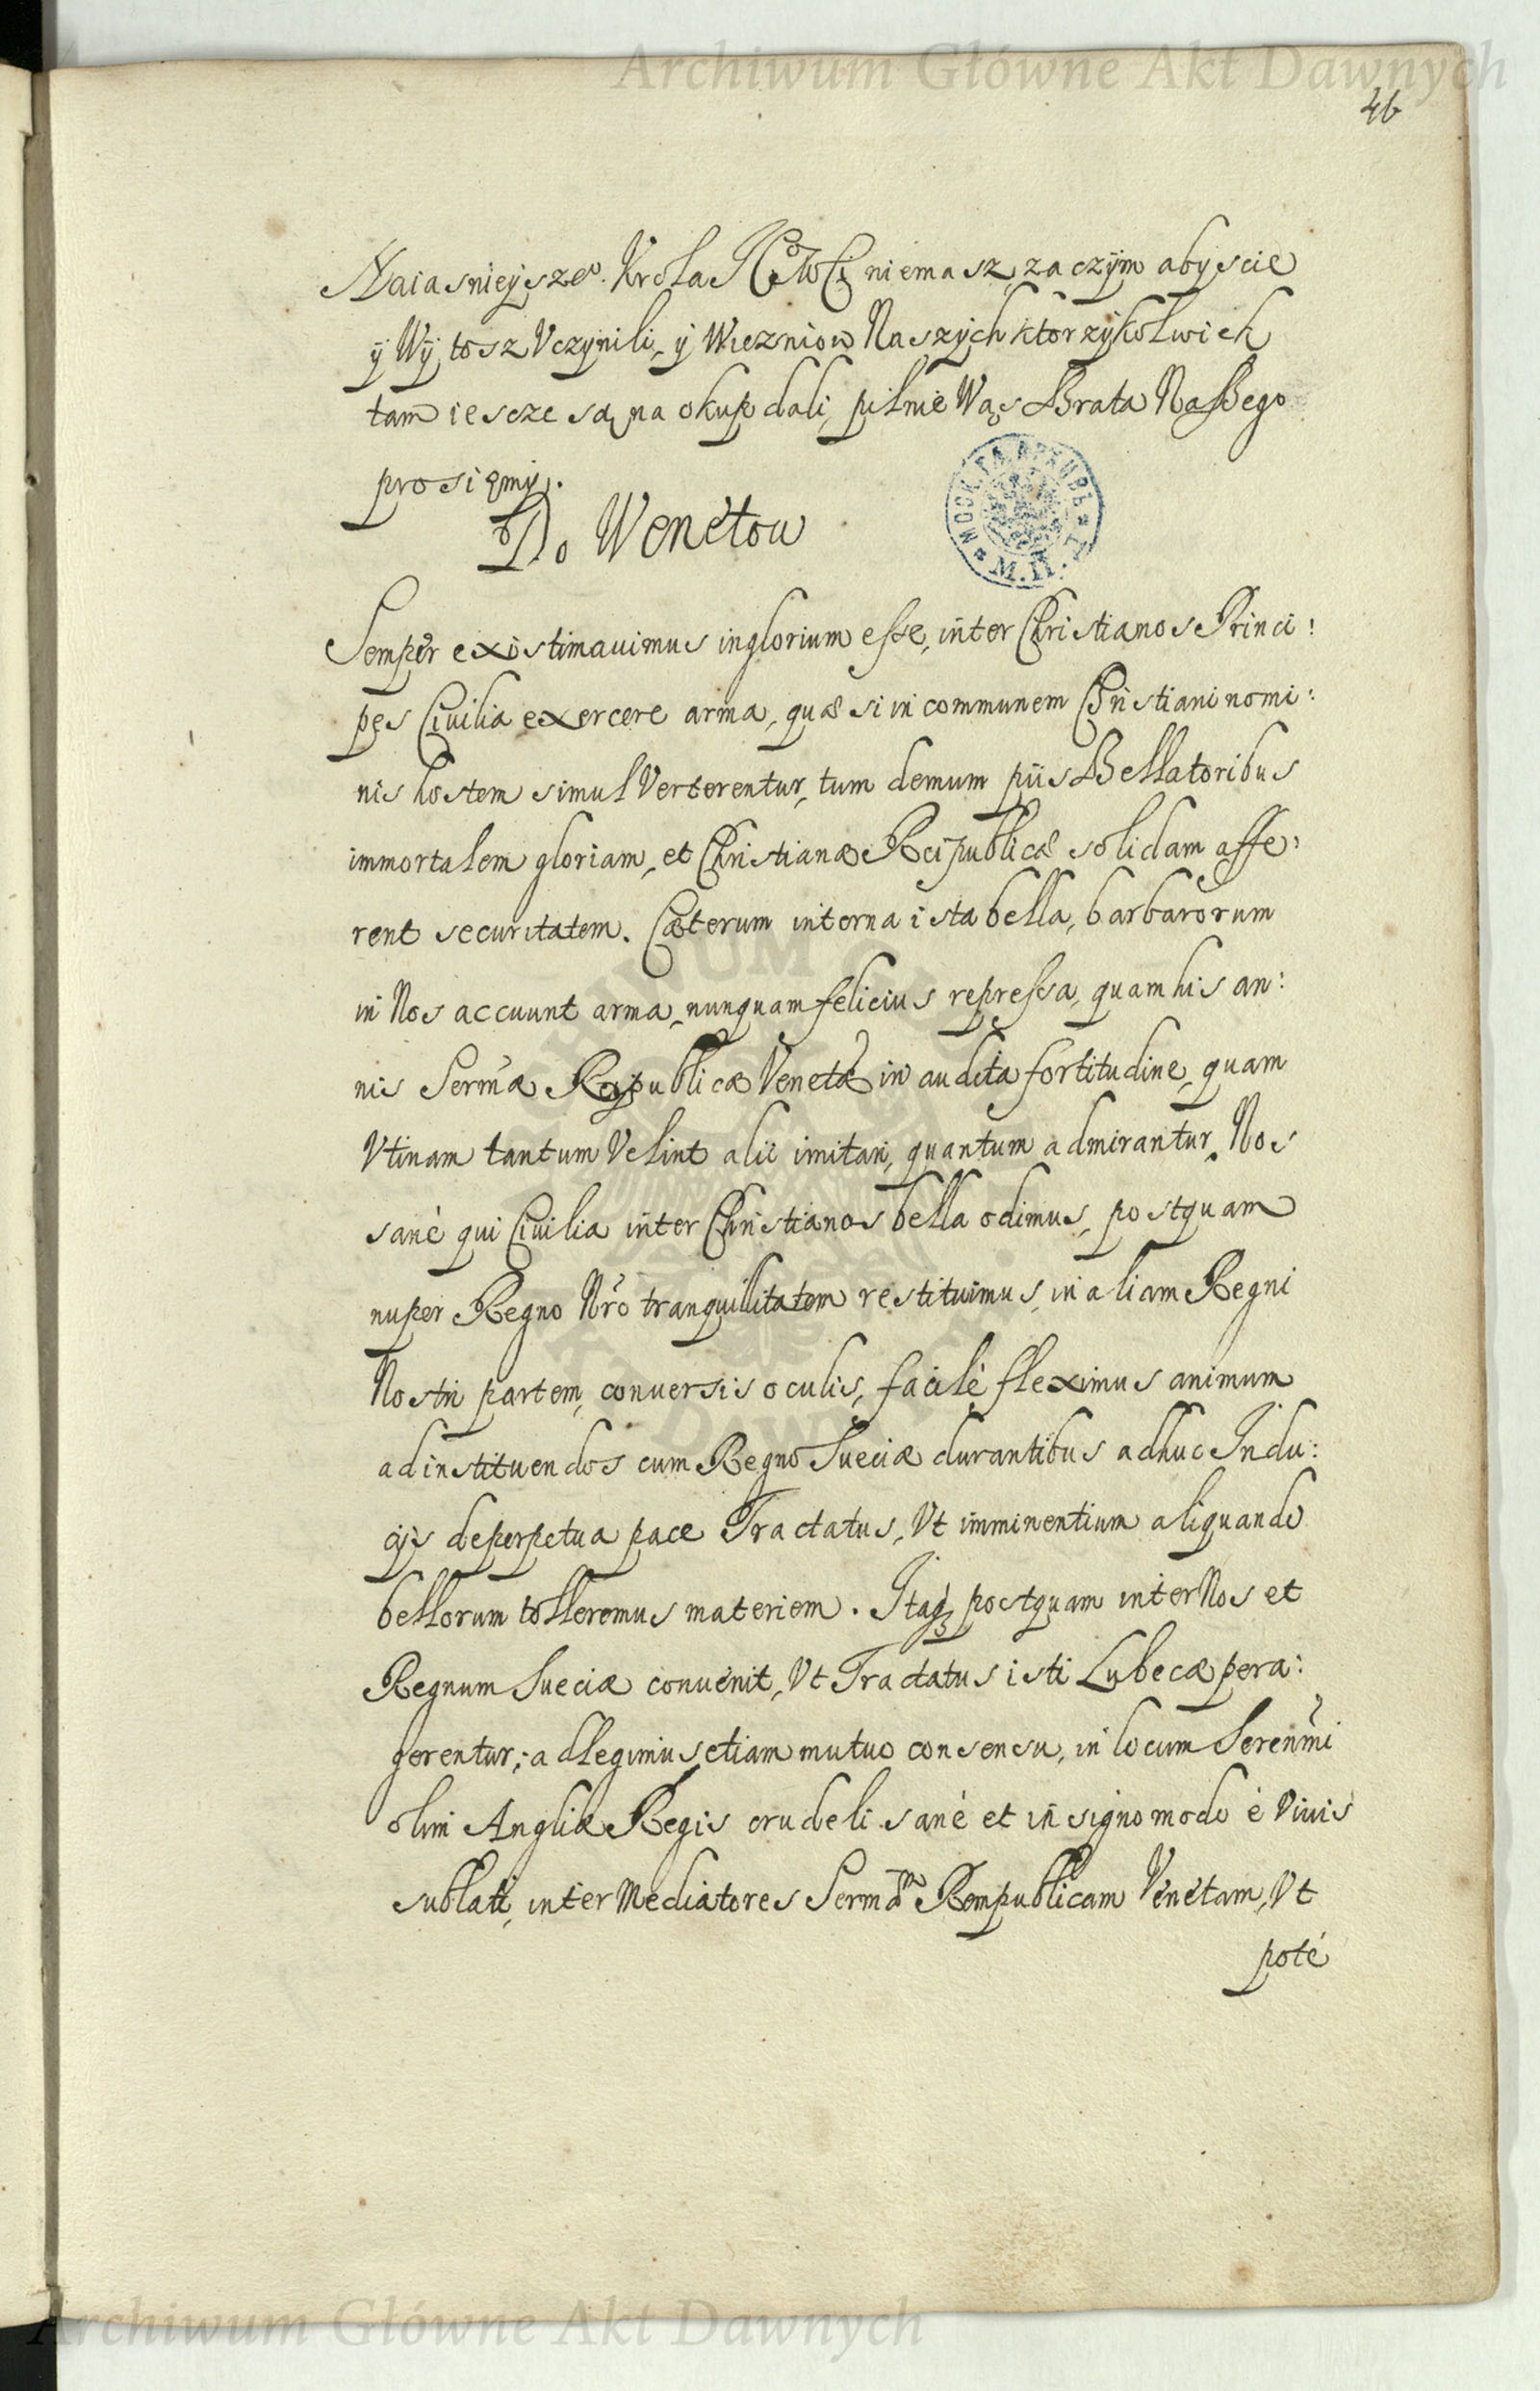 Archiwum Główne Akt Dawnych
46
Naiasnieyszeº. Krola niemasz, zaczÿm abyscie
ÿ Wÿ tosz Vczÿnili, ÿ Wiezniow Naszÿch ktorzÿkolwiek
tam iescze są na okup dali, pilnie Was Brata Naszego
prosięmÿ.
Do Wenetow
Semper existimauimus inglorium esse, inter Christianos Princi:
pes Ciuilia exercere arma, quæ si in communem Christiani nomi:
nis hostem simul Verterentur, tum demum piis Bellatoribus
immortalem gloriam, et Christianæ Reipublicæ solidam affe:
rent securitatem. Cæterum interna ista bella, barbarorum
in Nos accuunt arma, nunquam felicius repressa, quam his an:
nis Sermæ Reipublicæ Venetæ in audita fortitudine, quam
Vtinam tantum Velint alii imitari, quantum admirantur. Nos
sanè qui Ciuilia inter Christianos bella odimus, postquam
nuper Regno Nrõ tranquillitatem restituimus, in aliam Regni
Nostri partem, conuersis oculis, facilè fleximus animum
ad instituendos cum Regno Sueciæ durantibus adhuc Indu:
cijs de perpetua pace Tractatus, Vt imminentium aliquando
bellorum tolleremus materiem. Itaqꝫ postquam inter Nos et
Regnum Sueciæ conuenit, Vt Tractatus isti Lubecæ pera:
gerentur; adlegimus etiam mutuo consensu, in locum Serenmi
olim Angliæ Regis crudeli sanè et insigno modo è Viuis
sublati, inter Mediatores Sermãm Rempublicam Venetam, Vt
poté
Archiwum Główne Akt Dawnych